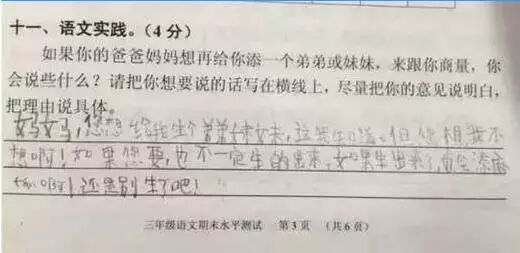 十一、语文实践。(4分)
如果你的爸爸妈妈想再给你添一个弟弟或妹妹,来跟你商量,你
会说些什么?请把你想要说的话写在横线上,尽量把你的意见说明白,
把理由说具体。
妈妈,您想给我生个弟弟妹妹,但您想我不
想啊!如果您要,也不一定生的出来,如果生出来了,会添麻
烦啊!还是别生了吧!
三年级语文期末水平测试 第3页 (共6页)